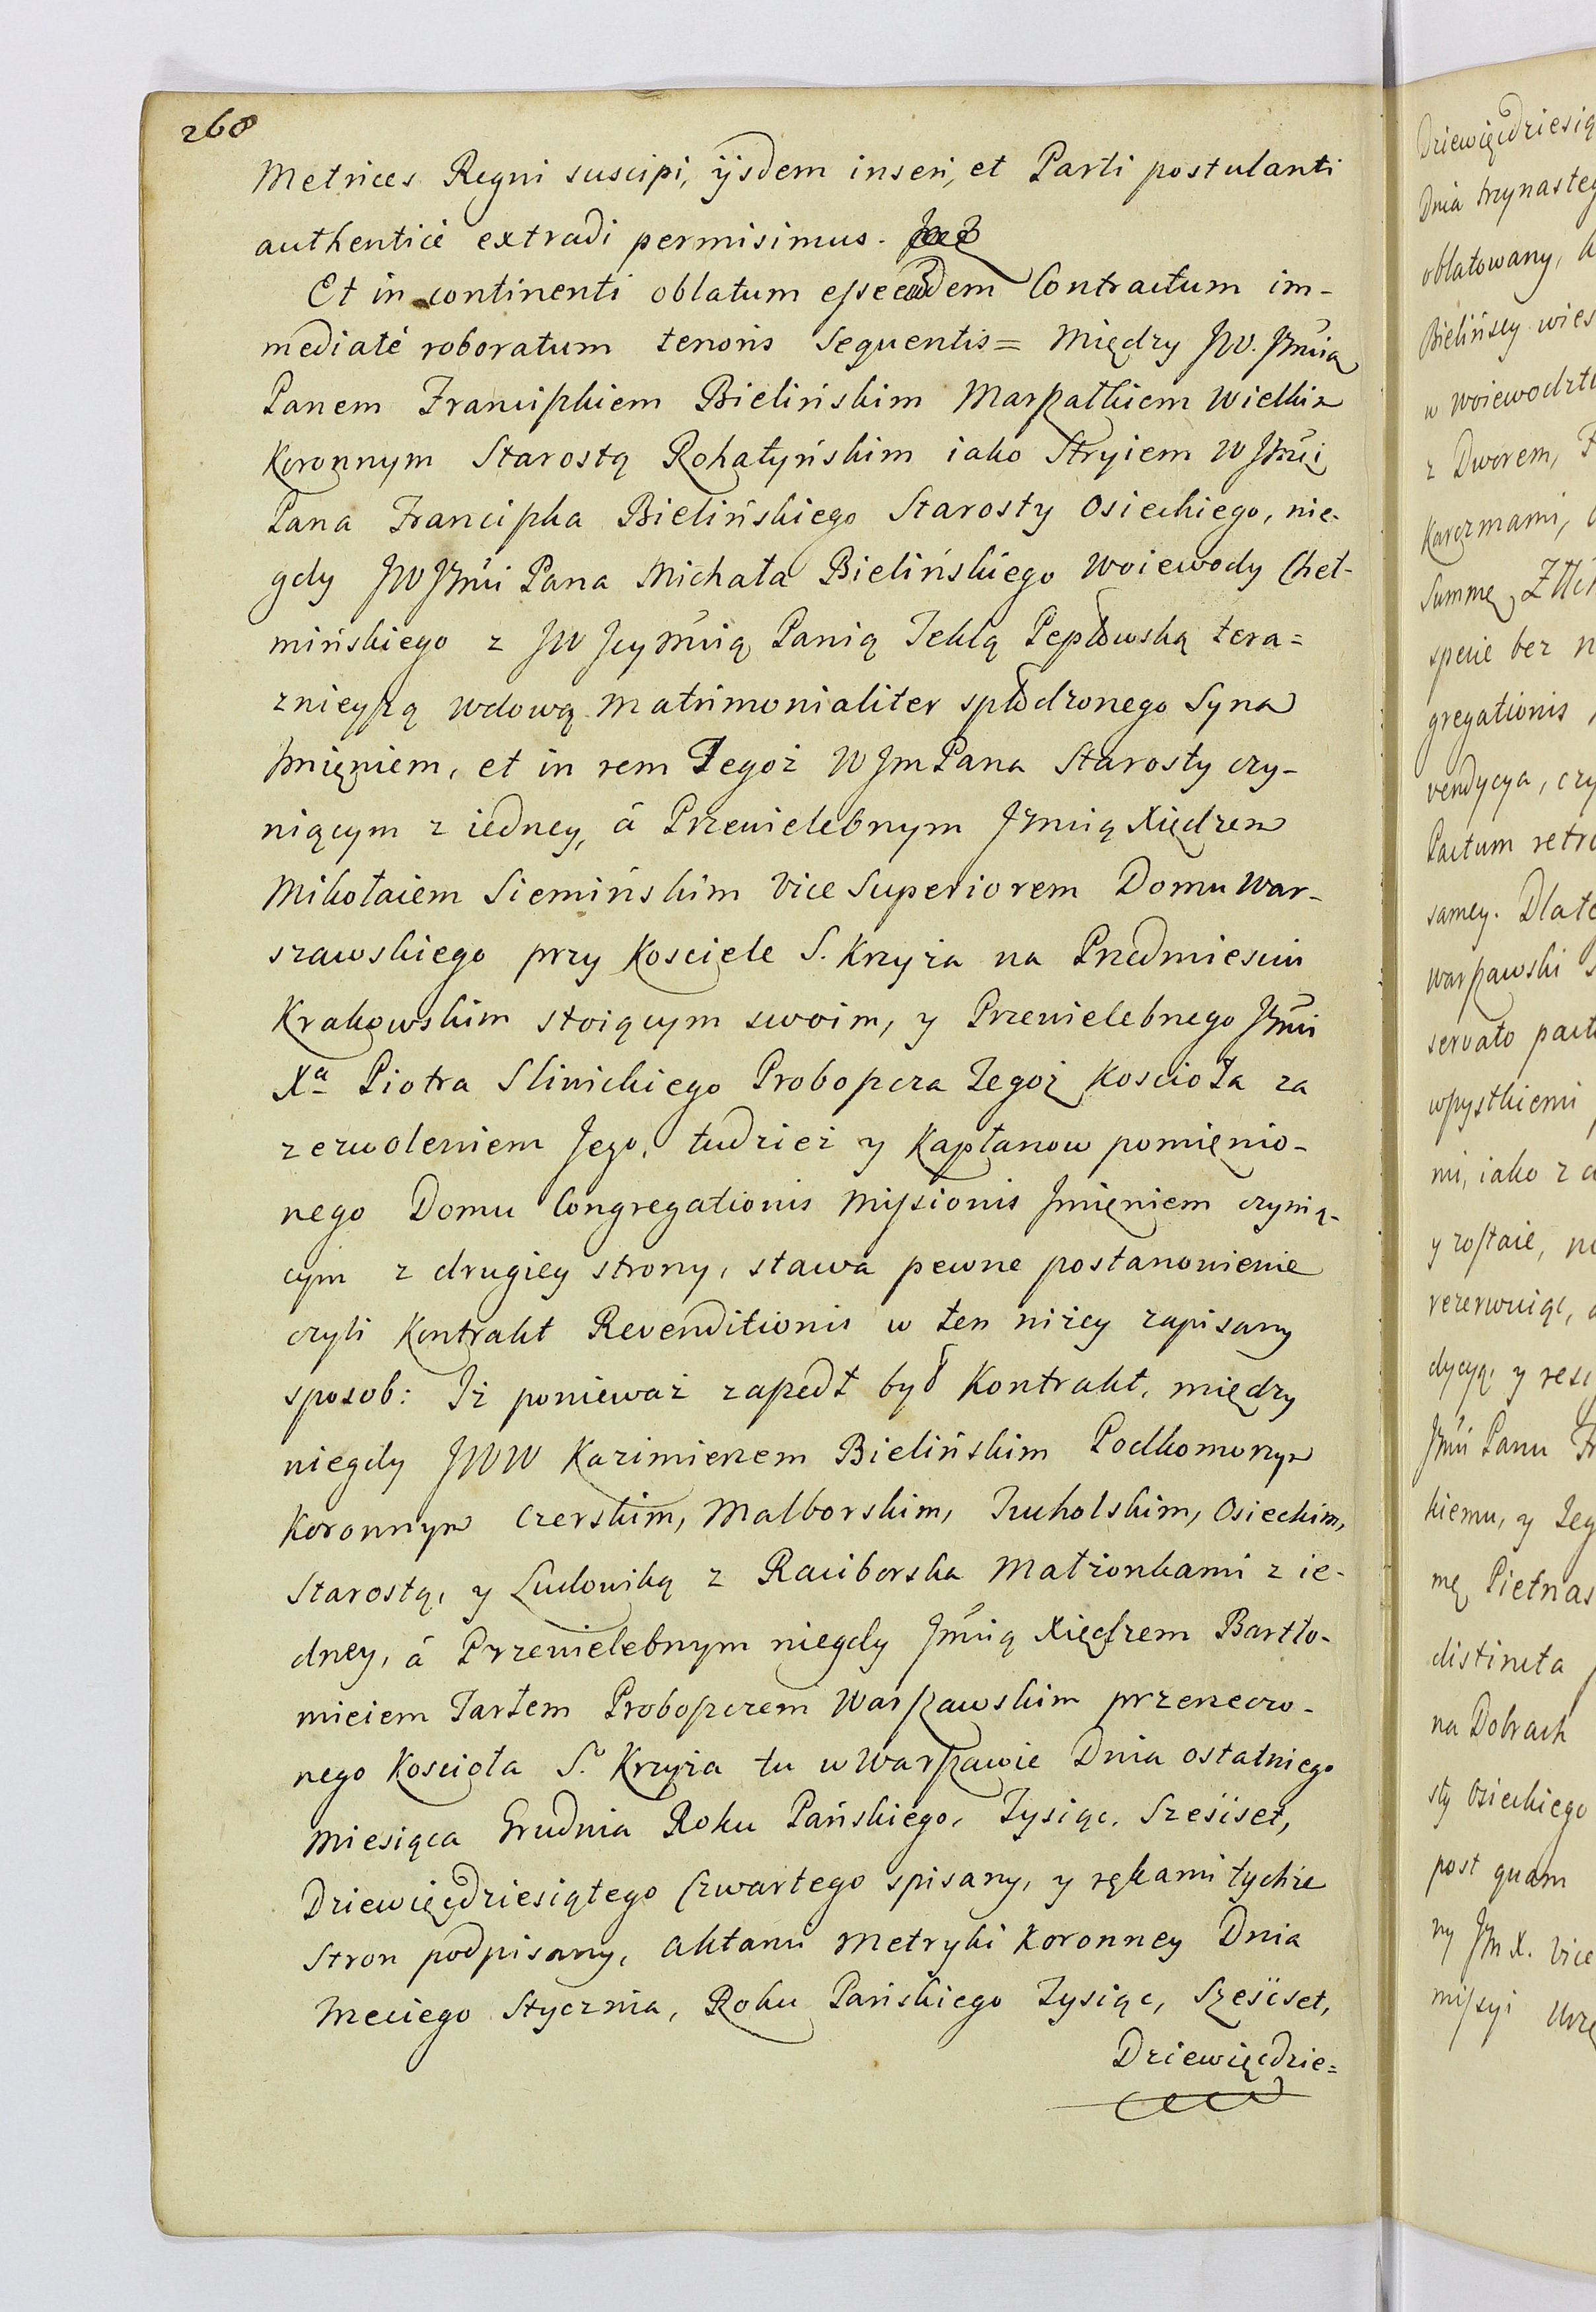 268
Metrices Regni suscipi, ijsdem inseri, et Parti postulanti
authenticè extradi permisimus.
Et in continenti oblatum esse eundem Contractum im-
mediatè roboratum tenoris Sequentis = Między JW. Jmcią
Panem Franciszkiem Bielińskim Marszałkiem Wielkim
Koronnym Starostą Rohatyńskim iako Stryiem W Jmci
Pana Franciszka Bielińskiego Starosty Osieckiego, nie-
gdy JW Jmci Pana Michała Bielińskiego Woiewody Cheł-
mińskiego z JW Jeymcią Panią Teklą Pepłowską tera=
znieyszą wdową matrimonialiter spłodzonego Syna
Jmięniem, et in rem Tegoż W Jm Pana Starosty czy-
niącym z iedney, á Przewielebnym Jmcią Xiędzem
Mikołaiem Siemińskim Vice Superiorem Domu War-
szawskiego przy Kosciele S. Krzyża na Przedmiesciu
Krakowskim stoiącym swoim, y Przewielebnego Jmci
Xa Piotra Sliwickiego Proboszcza Tegoż Koscioła za
zezwoleniem Jego, tudzież y Kapłanow pomięnio-
nego Domu Congregationis Missionis Jmięniem czynią-
cym z drugiey strony, stawa pewne postanowienie
czyli Kontrakt Revenditionis w ten niżey zapisany
sposob: Iż ponieważ zaszedł był Kontrakt, między
niegdy JWW Kazimierzem Bielińskim Podkomorzym
Koronnym Czerskim, Malborskim, Tucholskim, Osieckim,
Starostą, y Ludowiką z Raciborska Małżonkami z ie-
dney, á Przewielebnym niegdy Jmcią Xiędzem Bartło-
mieiem Tarłem Proboszczem Warszawskim przerzeczo-
nego Koscioła S. Krzyża tu w Warszawie Dnia ostatniego
Miesiąca Grudnia Roku Pańskiego, Tysiąc, Sześćset,
Dziewięćdziesiątego Czwartego spisany, y rękami tychże
Stron podpisany, Aktami Metryki Koronney Dnia
trzeciego Stycznia, Roku Pańskiego Tysiąc, Sześćset,
Dziewięćdzie=
Dziewięćdziesią
Dnia trzynasteg
oblatowany,
Bielińscy wies
w Woiewodzt
z Dworem,
Karczmami,
Summę
specie bez
gregationis
vendycya, czy
Pactum retro
samey. Dlate
Warszawski
servato pact
wszystkiemi
mi, iako z
y zostaie,
rezerwuiąc,
dycyą, y
Jmci Panu
kiemu, y Teg
mę Pietnas
distincta
na Dobrach
sty Osieckiego
post quam
ny Jm X. Vice
missyi